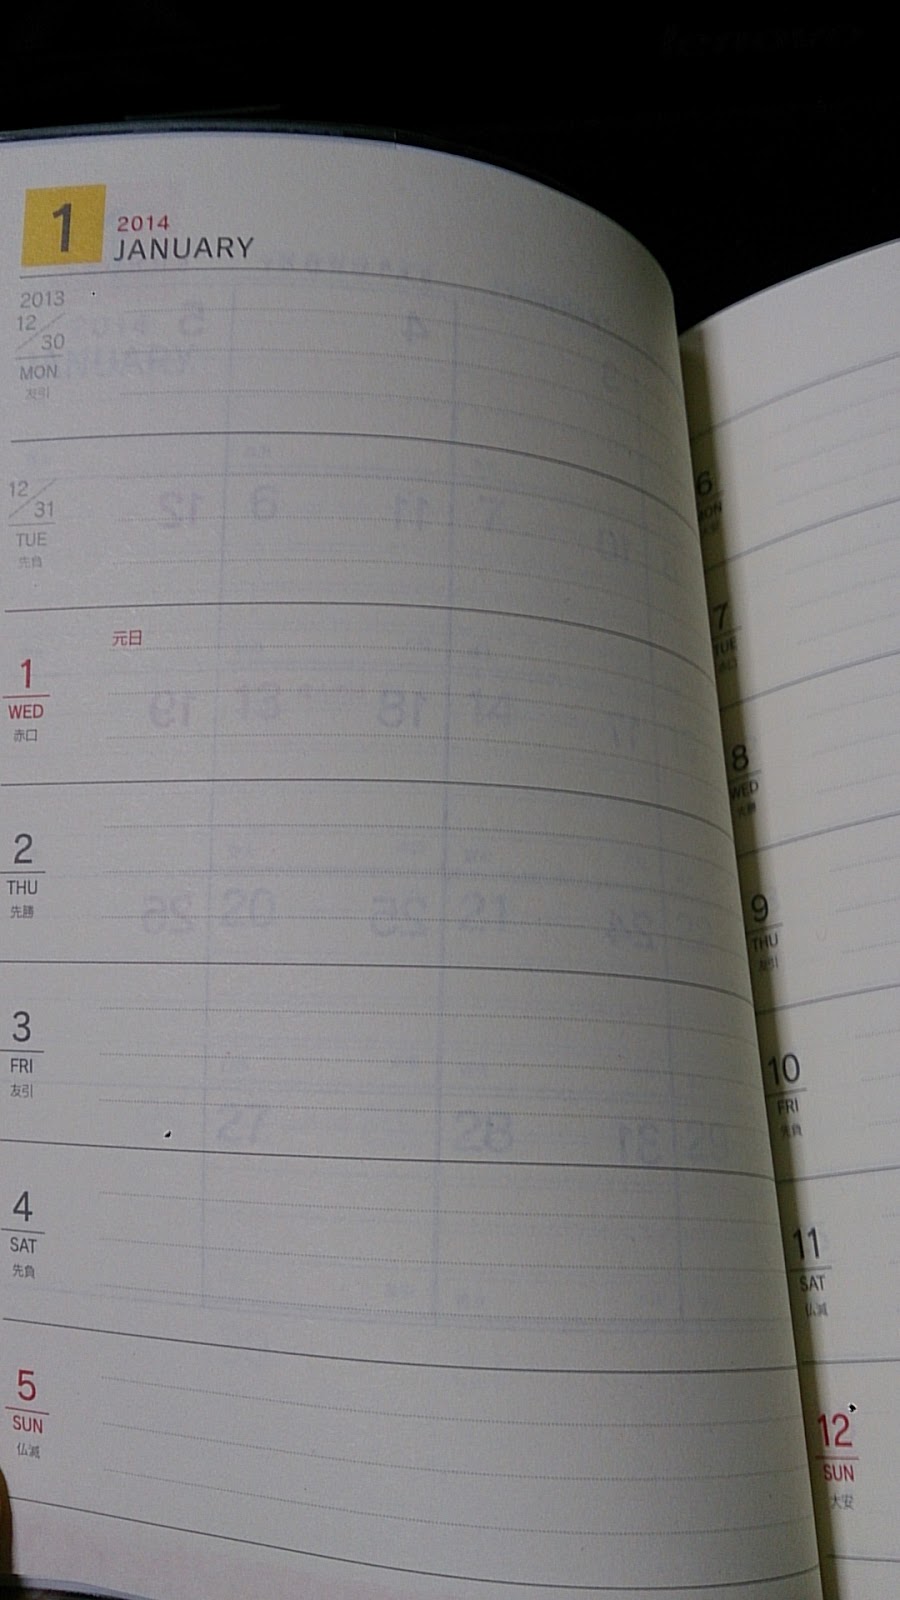 1
2014
JANUARY
2013
12/30
MON
友引
12/31
TUE
先負
元日
1
WED
赤口
2
THU
先勝
3
FRI
友引
4
SAT
先負
5
SUN
仏滅
6
MON
7
TUE
赤口
8
WED
先勝
9
THU
友引
10
FRI
先負
11
SAT
仏滅
12
SUN
大安